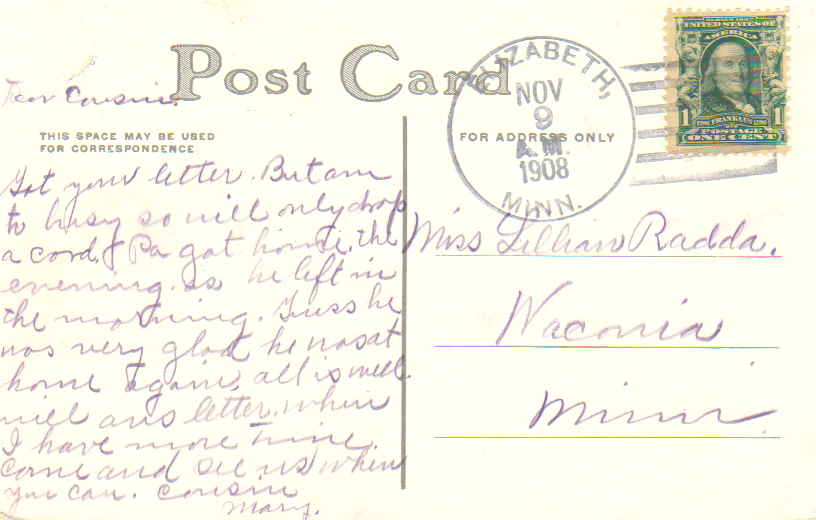 Post Card
Dear Cousin.
THIS SPACE MAY BE USED
FOR CORRESPONDENCE
Got your letter. But am
to busy so will only drop
a card. Pa got home the
evening. as he left in
the morning. Guss he
was very glad he was at
home again, all is well.
will ans letter. when
I have more time.
Come and see us when
you can. Cousin
Mary.
ELIZABETH,
NOV
9
A.M.
1908
MINN.
FOR ADDRESS ONLY
UNITED STATES OF
AMERICA
1 FRANKLIN 1
POSTAGE
ONE CENT
Miss Lillian Radda.
Waconia
Minn.